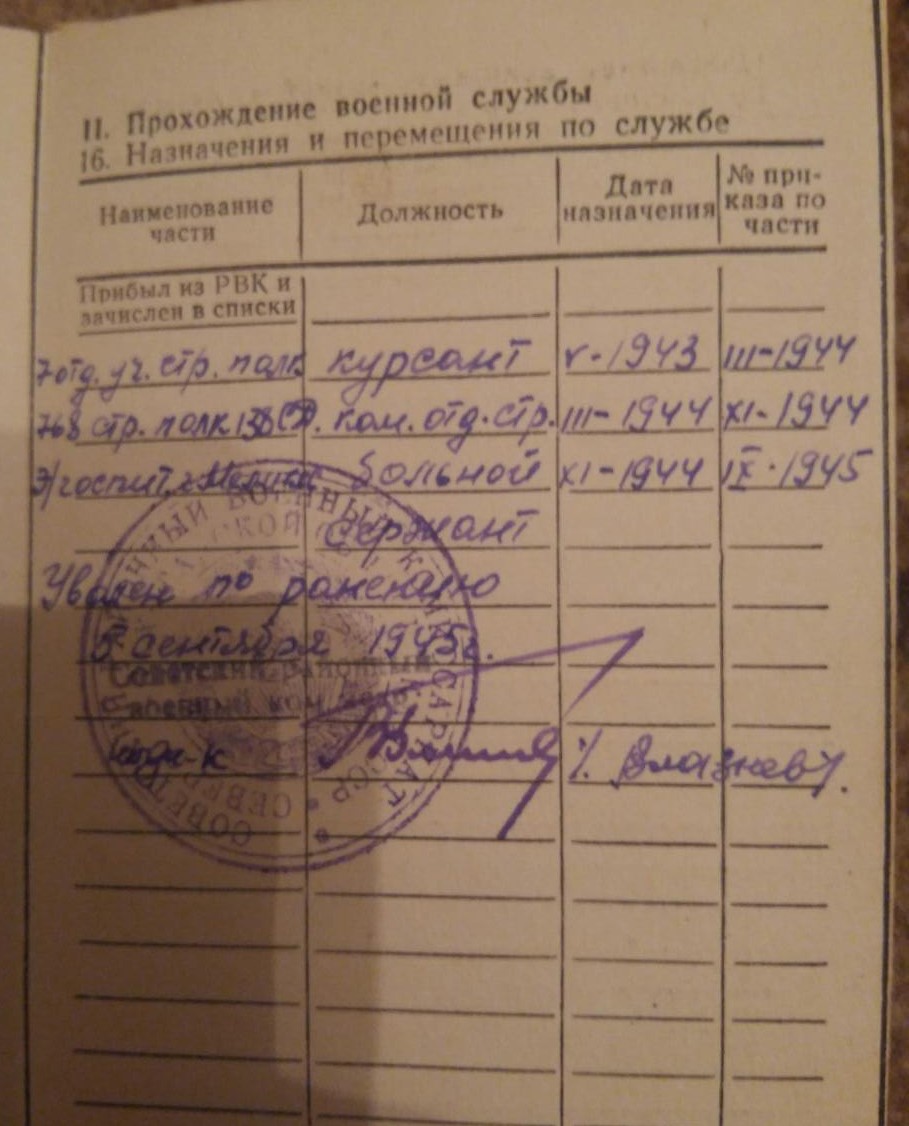 II. Прохождение военной службы
16. Назначения и перемещения по службе
Наименование части Должность Дата назначения № приказа по части
Прибыл из РВК и
зачислен в списки
7 отд. уч. стр. полк курсант V-1943 III-1944
768 стр. полк 138 СД. ком. отд. стр. III-1944 XI-1944
Э/госпит. больной XI-1944 IX-1945
сержант
Уволен по ранению
5 сентября 1945 г.
Советский районный
военный
СОВЕТСКИЙ РАЙОННЫЙ ВОЕННЫЙ КОМИССАРИАТ